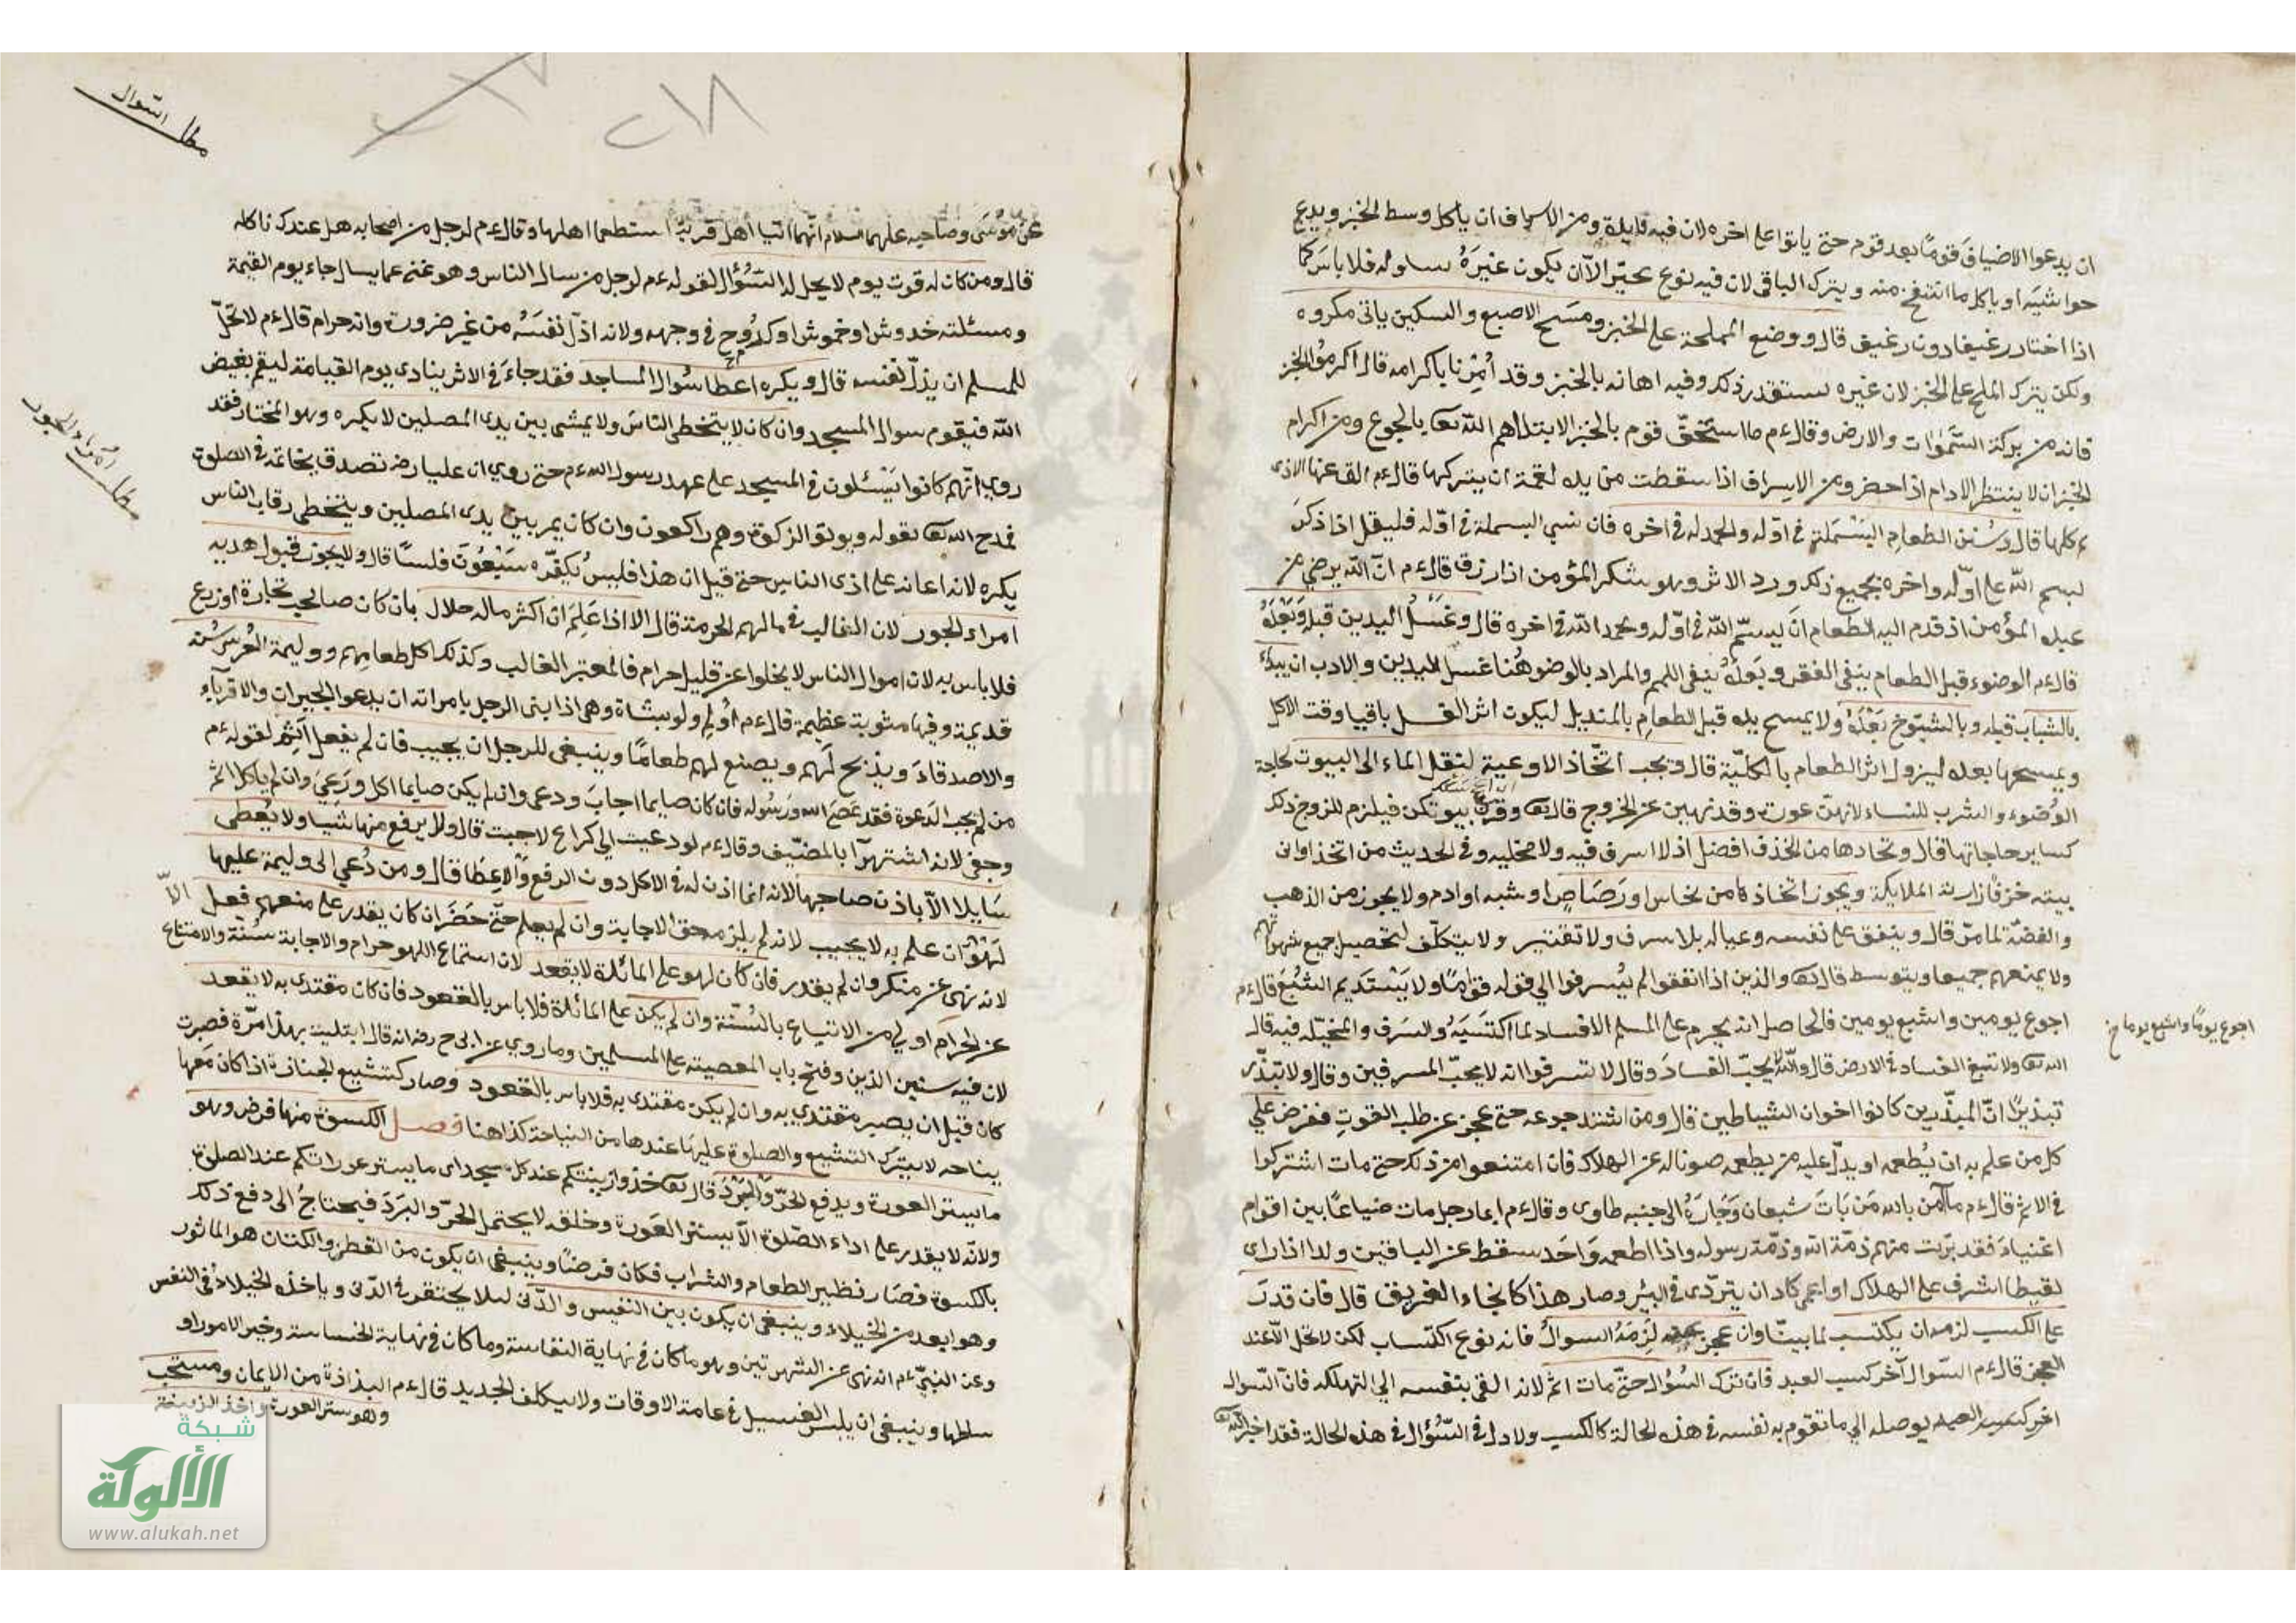 ان يدعوا الاضياف قوما بعد قوم حتى ياتوا على اخره لان فيه فايدة ومن الاسراف ان ياكل وسط الخبز ويدع
حواشيه او ياكل ما انتفخ منه ويترك الباقى لان فيه نوع تجبّر الاّ ان يكون غيرَهُ يتناوله فلا باسَ كما
اذا اختار رغيفا دون رغيف قال ووضع المملحة على الخبز ومسَح الاصبع والسكين ياتى مكروه
ولكن يترك الملح على الخبز لان غيره يستقذر ذلك وفيه اهانة بالخبز وقد اُمِرْنا باكرامه قال اكرموُا الخبز
فانه من بركة السَّموٰات والارض وقال ءم ما استخفّ قوم بالخبز الا ابتلاهم الله تع بالجوع ومن اكرام
الخبز ان لا ينتظر الادام اذا حضر ومن الاسراف اذا سقطت من يده لقمة ان يتركها قال ءم الق عنها الاذى
ثم كلها قال وسُنن الطعامِ البَسْمَلة فى اوّله والحمدله فى اخره فان نسي البسملة فى اوّله فليقل اذا ذكرَ
بسم اللّه على اوّله واخره بجميع ذلك ورد الاثر وهو شكر المؤمن اذا رزق قال ءم انّ اللّه يرضى من
عبده المؤمن اذ قدم اليه الطعام ان يسمّى اللّه فى اوّله ويحمد اللّه فى اخره قال وغَسْلُ اليدين قبله وبَعْدَهُ
قال ءم الوضوء قبل الطعام ينفى الفقر وبَعدَهُ ينفى اللمم والمراد بالوضوء هُنا غسل اليدين والادب ان يبدَء
بالشباب قبله وبالشيوخ بَعْدَهُ ولا يمسح يده قبل الطعامِ بالمنديل ليكون اثر الغسل باقيا وقت الاكل
ويمسحها بعده ليزول اثر الطعام بالكلّية قال ويجب اتّخاذ الاوعية لنقل الماء الى البيوت لحاجة
الوُضوء والشرب للنساء لانهنّ عورت وقد نهين عن الخروج قال تع وقرن فى بيوتكن فيلزم للزوج ذلك
كساير حاجاتها قال واتخاذها من الخذف افضل اذ لا اسرف فيه ولا مخيلة وفى الحديث من اتخذ اوانى
بيته خزفًا زارته الملايكة ويجوز اتخاذها من نحاس ورَصَاصٍ او شبه او ادم ولا يجوز من الذهب
والفضّة لما مرّ قال وينفق على نفسه وعياله بلا سرف ولا تقتير ولا يتكلّف لتحصيل جميع شهواتهم
ولا يمنعهم جميعا ويتوسط قال تع والذين اذا انفقوا لم يُسرفوا الى قوله قوامًا ولا يَسْتَديم الشبَعَ قال ءم
اجوع يومين واشبع يومين فالحاصل انه يحرم على المسلم الافساد لما اكتسَبَهُ والسَرف والمخيّله فيه قال
اجوع يومًا واشبع يوما خ
الله تع ولا تبغ الفساد فى الارض قال واللّه لا يحبّ الفسادَ وقال لا تسرفوا انه لا يحبّ المسرفين وقال ولا تبذّر
تبذيرًا انّ المبذّرين كانوا اخوان الشياطين قال ومن اشتد جوعه حتى عجز عن طلب القوتِ ففرض على
كل من علم به ان يُطعمه او يدلّ عليه من يطعمه صونا له عن الهلاك فان امتنعوا من ذلك حتى مات اشتركوا
فى الاثم قال ءم ما آمن بالله مَن بَاتَ شبعان وَجَارَهُ الى جنبه طاوى وقال ءم ايما رجل مات ضياعًا بين اقوام
اغنياءَ فقد برّت منهم ذمّة اللّه وذمّة رسوله واذا اطعمه وَاحَد سقط عن الباقين ولذا اذا راى
لقيطا اشرف على الهلاك او اعمى كاد ان يتردّى فى البئر وصار هذا كانجاء الغريق قال فان قدرَ
على الكسب لزمه ان يكتسب لما بينّا وان عجز عنه لَزِمَهُ السوالُ فانه نوع اكتساب لكن لا تحل الاّ عند
العجز قال ءم السّوال آخر كسب العبد فان ترك السُؤال حتّى مات اثم لانه القى بنفسه الى التهلكه فانّ السّوال
اخر كسب العبد يوصله الى ما تقوم به نفسه فى هذه الحالة كالكسب ولا ذل فى السُّؤال فى هذه الحالة فقد اخبر اللّه تع
مطلب السّوال
٢١٨
عن مُوسَى وصَاحبه عليهما السلام انّهما اتيا اهل قرية استطعما اهلها وقال ءم لرجل من اصحابه هل عندك ناكله
قال ومن كان له قوت يوم لا يحل له السّؤال لقوله ءم لرجل من سال الناس وهو غنى عما يسال جاء يوم القيٰمة
ومسئلته خدوش او خموش او كدُوح فى وجهه ولانه اذلّ نفسَهُ من غير ضرورت وانه حرام قال ءم لا تحلّ
للمسلم ان يذلّ نفسه قال ويكره اعطا سُوال المساجد فقد جاءَ فى الاثر ينادى يوم القيامة ليقم بغيض
اللّه فيقوم سوال المسجد وان كان لا يتخطى الناسَ ولا يمشى بين يدى المصلين لا يكره وهو المختار فقد
روى انّهم كانوا يَسْئلون فى المسجد على عهد رسول الله ءم حتى روى ان عليا رض تصدق بخاتمه فى الصلوة
فمدح الله تع بقوله ويوتو الزكوة وهم راكعون وان كان يمر بين يدى المصلين ويتخطى رقاب الناس
يكره لانه اعانه على اذى الناس حتى قيل ان هذا فليس يُكفّره سَبْعُوَن فلسًا قال ولا يجوز قبول هديه
امراء الجور لان الغالب فى مالهم الحرمة قال الا اذا عَلِمَ انّ اكثر ماله حلال بان كان صاحب تجارة او زرع
مطلب امراء الجور
فلا باس به لان اموال الناس لا يخلوا عن قليل حرام فالمعتبر الغالب وكذلك اكل طعامهم ووليمة العُرس سُنّة
قديمة وفيها مثوبة عظيمة قال ءم اَولِم ولو بشاة وهى اذا بنى الرجل بامراته ان يدعوا الجيران والاقرباءَ
والاصدقاءَ ويذبح لَهُم ويصنع لهم طعامًا وينبغى للرجل ان يجيب فان لم يفعل اَثِم لقوله ءم
من لم يجب الدَعوة فقد عَصَى الله ورَسُوله فان كان صايما اجابَ ودعى وان لم يكن صايما اكل ودَعىَ وان لم ياكل اثم
وجفى لانه اشتهزآ بالمضيّف وقال ءم لو دعيت الى كراع لاجبت قال ولا يرفع منها شيا ولا يُعطى
سَايلا الاّ باذن صاحبها لانه انما اذن له فى الاكل دون الرفع والاعِطا قال ومن دُعي الى وليمة عليها
لَهْوٌ ان علم به لا يجيب لانه لم يلزمه حق الاجابة وان لم يعلم حتّى حَضَر ان كان يقدر على منعهم فعل
لانه نهى عن منكر وان لم يقدر فان كان لهو على المائدة لا يقعد لان استماع اللهو حرام والاجابة سُنّة والامتناع
عن الحرام اولى من الاتيان بالسُنّة وان لم يكن على المائدة فلا باس بالقعود فان كان مقتدى به لا يقعد
لان فيه شين الدين وفتح باب المعصيته على المسلمين وما روي عن ابى ح رض انه قال ابتليت بهذا مرّة فصبرت
كان قبل ان يصير مقتدى به وان لم يكن مقتدى به فلا باس بالقعود وصار كتشييع الجنازة اذا كان مَعها
نياحه لا يترك التشييع والصلوة عليها عندها من النياحة كذا هنا فصل الكسوة منها فرض وهو
ما يستر العورة ويدفع الحرّ والبَرْدُ قال تع خذوا زينتكم عند كل مسجد اى ما يستر عوراتكم عند الصلوة
ولانّه لا يقدر على اداء الصّلوة الاّ بستر العَورة وخلقه لا يحتمل الحرّ والبَرَدَ فيحتاجُ الى دفع ذلك
بالكسوة فصَار نظير الطعام والشراب فكان فرضًا وينبغى ان يكون من القطن والكتان هو الماثور
وهو ابعد من الخيلاء وينبغى ان يكون بين النفيس والدّنى لئلا يحتقر فى الدّنى وياخذه الخيلاءُ فى النفس
وعن النبيّ ءم انه نهى عن الشهرتين وهو ما كان فى نهاية النفاسة وما كان فى نهاية الخساسة وخير الامور او
سطها وينبغى ان يلبس الغسيل فى عامة الاوقات ولا يتكلف الجديد قال ءم البذاذة من الايمان ومستحب
وهو ستر العورة واخذ الزينة
شبكة
الألوكة
www.alukah.net